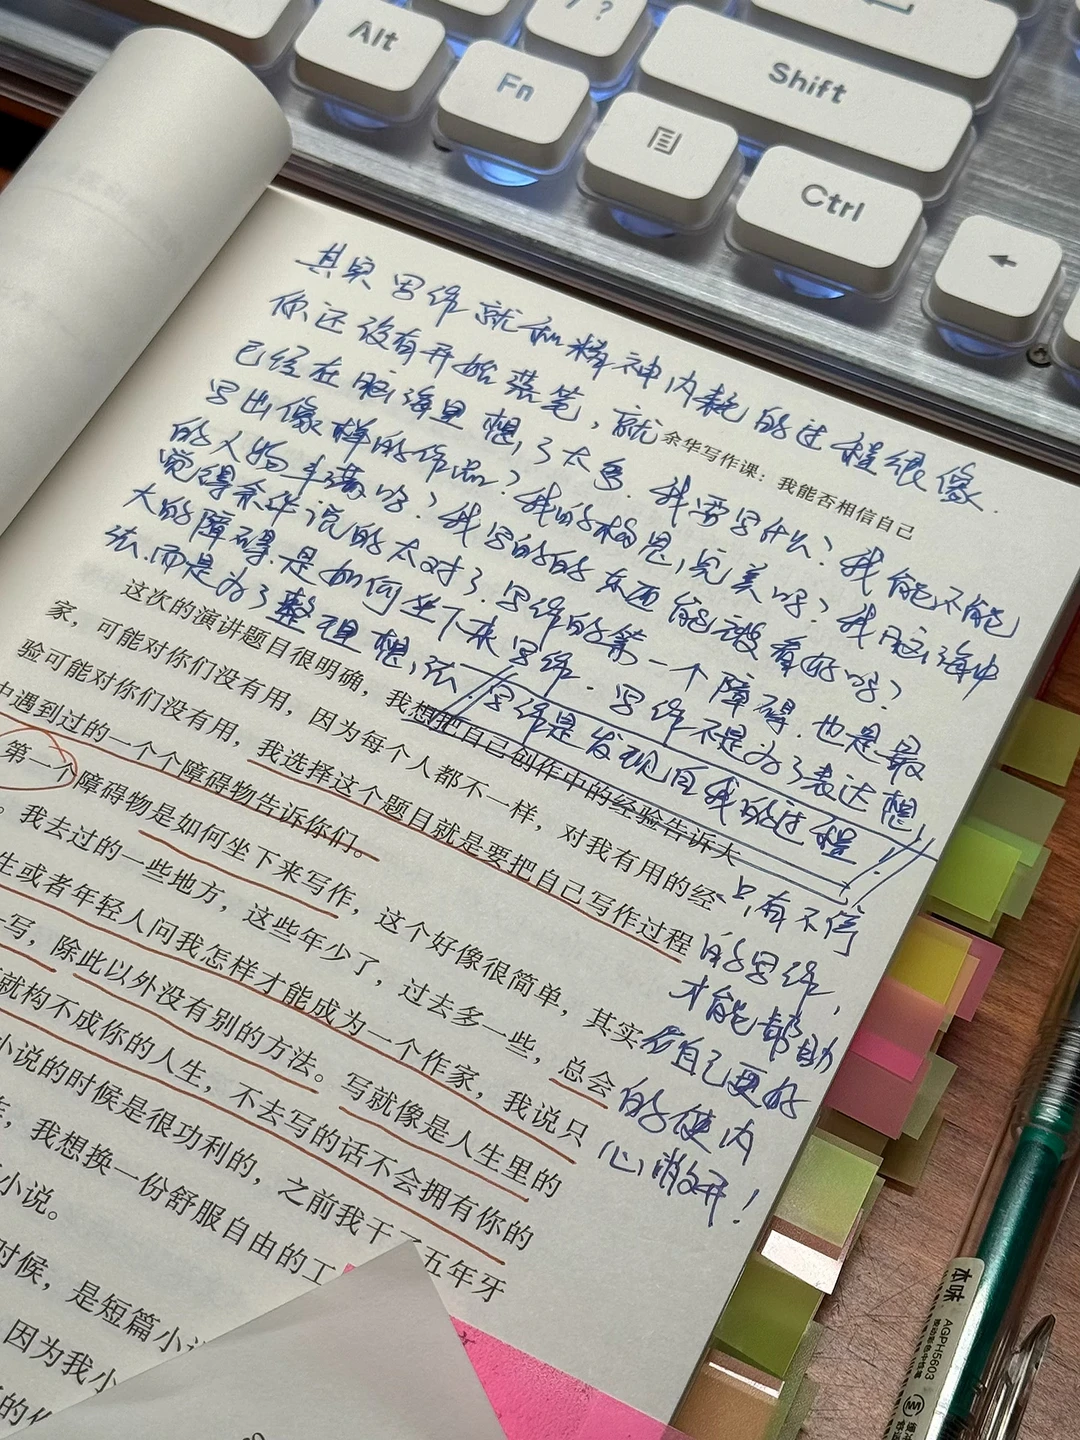 Alt
Fn
? /
Shift
Ctrl
其实写作就和精神内耗的过程很像.
你还没有开始落笔，就
余华写作课：我能否相信自己
已经在脑海里想了太多. 我要写什么？我能不能
写出像样的作品？我的构思完美吗？我脑海中
的人物丰满吗？我写的的东西能被看好吗？
觉得余华说的太对了. 写作的第一个障碍. 也是最
大的障碍. 是如何坐下来写作. 写作不是为了表达想
法. 而是为了整理想法. 写作是发现自我的过程！
只有不停
的写作，
才能帮助
你自己更好
的使内
心敞开！
这次的演讲题目很明确，我想把自己创作中的经验告诉大
家，可能对你们没有用，因为每个人都不一样，对我有用的经
验可能对你们没有用，我选择这个题目就是要把自己写作过程
中遇到过的一个个障碍物告诉你们。
第一个障碍物是如何坐下来写作，这个好像很简单，其实
。我去过的一些地方，这些年少了，过去多一些，总会
生或者年轻人问我怎样才能成为一个作家，我说只
写，除此以外没有别的方法。写就像是人生里的
就构不成你的人生，不去写的话不会拥有你的
小说的时候是很功利的，之前我干了五年牙
，我想换一份舒服自由的工
小说。
时候，是短篇小
因为我小
的
本味
AGPH5603